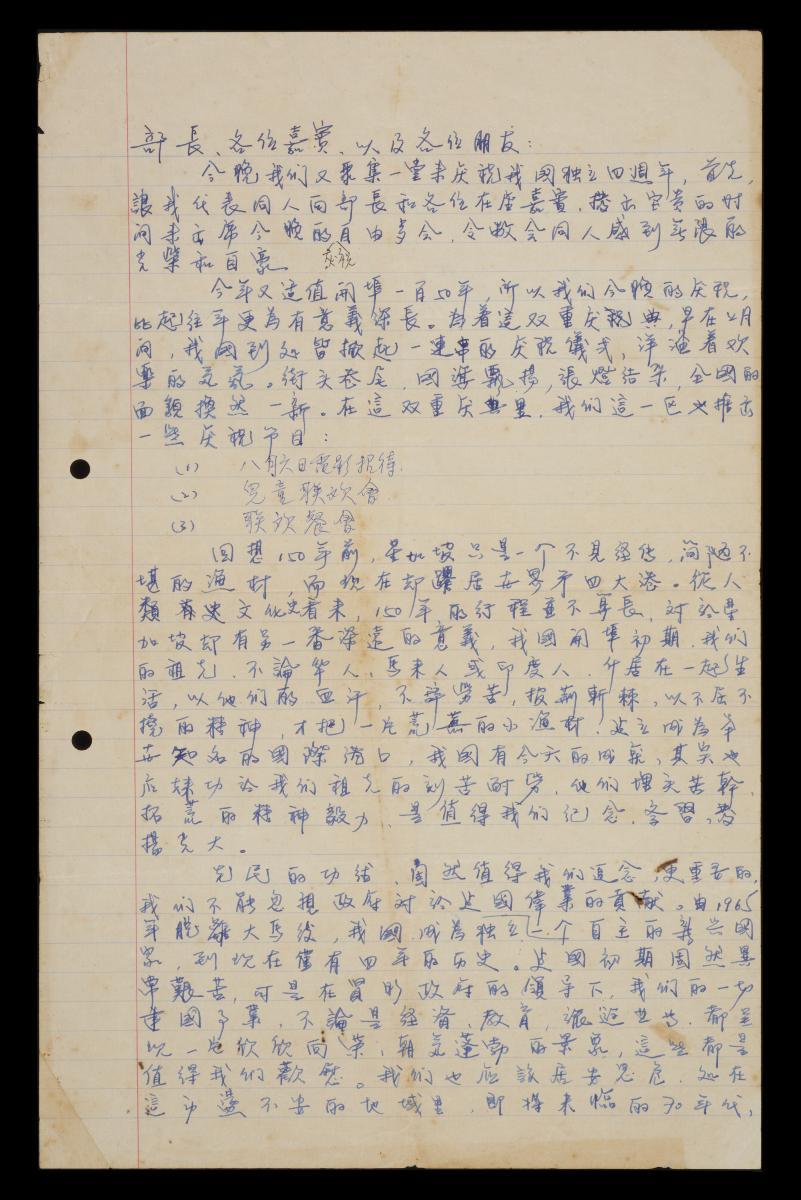 部長、各位嘉賓、以及各位朋友：
今晚我们又聚集一堂来庆祝我國独立四週年，首先，
讓我代表同人向部長和各位在座嘉賓，撥出宝贵的时
间来出席今晚的自由多会，令敝会同人感到無限的
光榮和自豪 庆祝
今年又适值開埠一百50年，所以我们今晚的庆祝，
比起往年更為有意義深長。為着這双重庆祝典，早在2月
间，我國到处皆掀起一連串的庆祝儀式，洋溢着欢
樂的气氛。街头巷尾，國旗飄扬，張燈结彩，全國的
面貌換然一新。在這双重庆典里，我们這一区也推出
一些庆祝节目：
(1) 八月六日電影招待
(2) 兒童联欢會
(3) 联欢餐會
回想150年前，星加坡只是一个不見经传，简陋不
堪的渔村，而现在却躍居世界第四大港。從人
類 史文化史看来，150年的行程並不算長，对於星
加坡却有另一番深遠的意義，我國開埠初期，我们
的祖先，不論华人、馬来人或印度人，什居在一起生
活，以他们的血汗，不辞劳苦，披荆斬棘，以不屈不
撓的精神，才把一片荒蕪的小漁村，建立成為举
世知名的國際港口，我國有今天的成就，其实也
应 功於我们祖先的刻苦耐劳，他们埋头苦幹，
拓荒的精神毅力，是值得我们纪念，学習，發
揚光大。
先民的功绩，固然值得我们追念，更重要的，
我们不能忽视政府对於建國偉業的貢献。由1965
年脱離大馬後，我國成為独立一个自主的新兴國
家，到现在僅有四年的历史。建國初期固然異
常艱苦，可是在賢明政府的领导下，我们的一切
建國事業，不論是经济，教育， 都呈
现一片欣欣向荣，朝気蓬勃的景象，這些都是
值得我们歡慰。我们也应該居安思危，处在
這动盪不安的地域里，即将来臨的70年代，